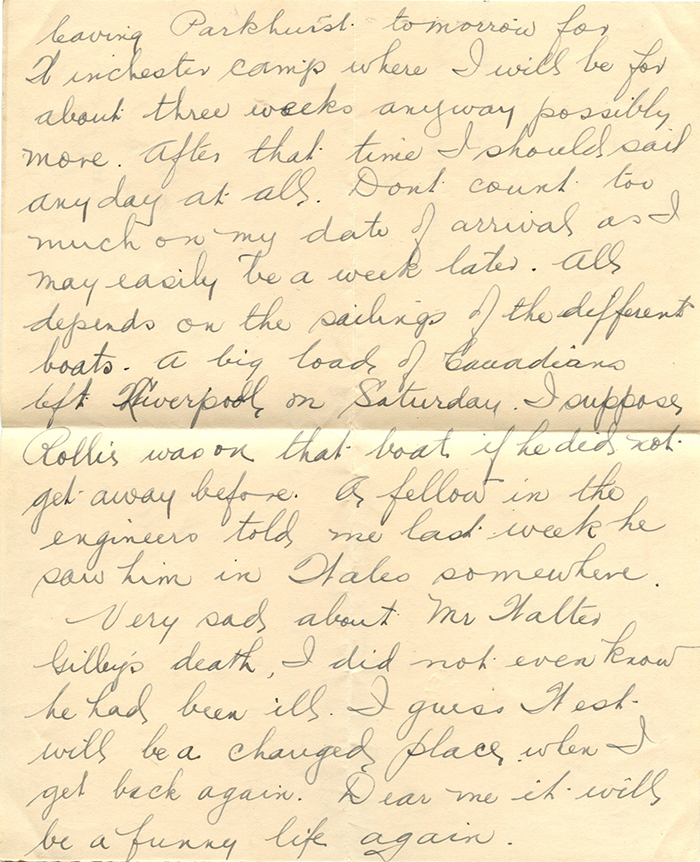 leaving Parkhurst tomorrow for
Winchester camp where I will be for
about three weeks anyway possibly
more. After that time I should sail
any day at all. Dont count too
much on my date of arrival as I
may easily be a week later. All
depends on the sailings of the different
boats. A big load of Canadians
left Liverpool on Saturday. I suppose
Rollie was on that boat if he did not
get away before. A fellow in the
engineers told me last week he
saw him in Wales somewhere.
Very sad about Mr Walter
Gilbey's death, I did not even know
he had been ill. I guess West
will be a changed place when I
get back again. Dear me it will
be a funny life again.